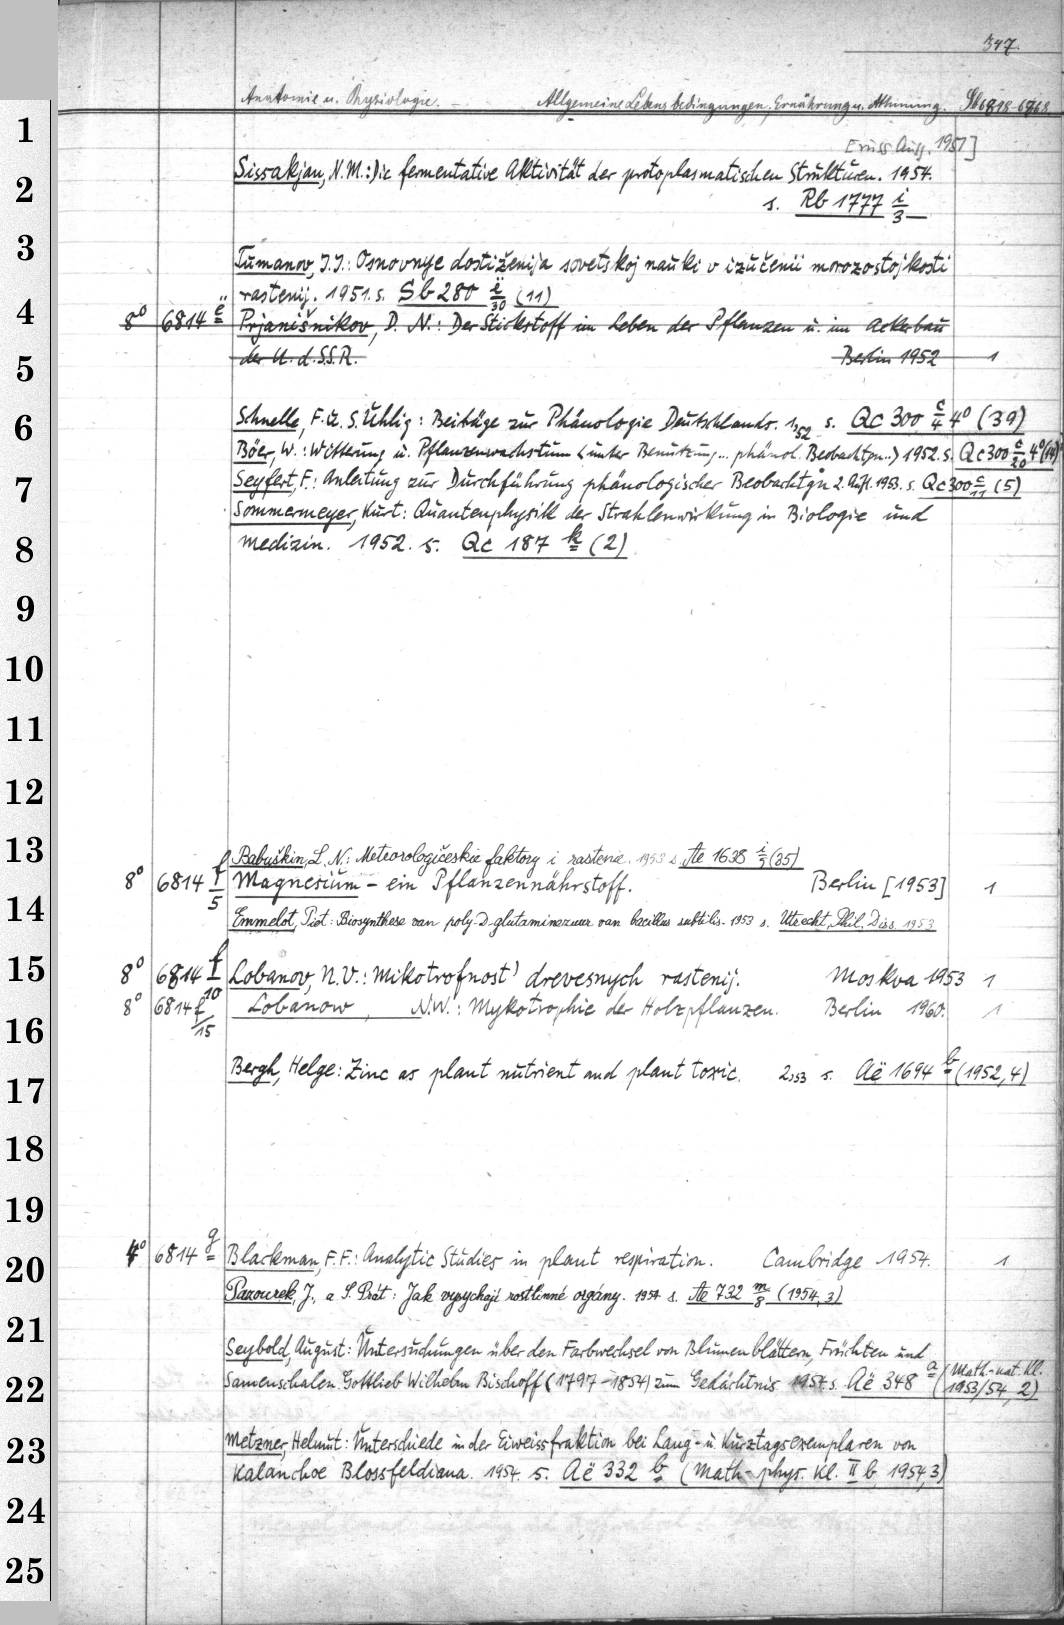 347.
Anatomie u. Physiologie. - Allgemeine Lebensbedingungen, Ernährung u. Athmung. Sb 6818-6968.
[russ. Ausg. 1951]
1
Sissakjan, N.M.: Die fermentative Aktivität der protoplasmatischen Strukturen. 1954.
2
s. Rb 1777 i/3
3
Tumanov, I.I.: Osnovnye dostiženija sovetskoj nauki v izučenii morozostojkosti
rastenij. 1951. s. Sb 280 ï/30 (11)
4
8° 6814 ë Prjanišnikov, D. N.: Der Stickstoff im Leben der Pflanzen u. im Ackerbau
5
der U.d.S.S.R. Berlin 1952 1
6
Schnelle, F. u. S. Uhlig: Beiträge zur Phänologie Deutschlands. 1, 52 s. Qc 300 c/4 4° (39)
Böer, W.: Witterung u. Pflanzenwachstum (unter Benutzung... phänol. Beobachtgn..) 1952. s. Qc 300 c/20 4° (14)
7
Seyfert, F.: Anleitung zur Durchführung phänologischer Beobachtgn 2. Aufl. 1953. s. Qc 300 c/11 (5)
Sommermeyer, Kurt: Quantenphysik der Strahlenwirkung in Biologie und
8
Medizin. 1952. s. Qc 187 k (2)
9
10
11
12
13
Babuškin, L. N.: Meteorologičeskie faktory i rastenie. 1953 s. Ae 1638 i/5 (35)
8° 6814 f/5 Magnesium - ein Pflanzennährstoff. Berlin [1953] 1
14
Emmelot, Piet: Biosynthese van poly-D-glutaminezuur van bacillus subtilis. 1953 s. Utrecht, Phil. Diss. 1953
15
8° 6814 f/10 Lobanov, N.V.: Mikotrofnost' drevesnych rastenij. Moskva 1953 1
8° 6814 f/15 Lobanow, N.W.: Mykotrophie der Holzpflanzen. Berlin 1960. 1
16
Bergh, Helge: Zinc as plant nutrient and plant toxic. 2, 53 s. Aë 1694 b (1952, 4)
17
18
19
4° 6814 g Blackman, F.F.: Analytic Studies in plant respiration. Cambridge 1954. 1
20
Pazourek, J., a S. Prát: Jak vypychají rostlinné orgány. 1954 s. Ae 732 m/8 (1954, 3)
21
Seybold, August: Untersuchungen über den Farbwechsel von Blumenblättern, Früchten und
22
Samenschalen. Gottlieb Wilhelm Bischoff (1797-1854) zum Gedächtnis 1954. s. Aë 348 a (Math.-nat. Kl. 1953/54, 2)
23
Metzner, Helmut: Unterschiede in der Eiweissfraktion bei Lang- u. Kurztagsexemplaren von
Kalanchoe Blossfeldiana. 1954. s. Aë 332 b (Math-phys. Kl. II b, 1954,3)
24
25